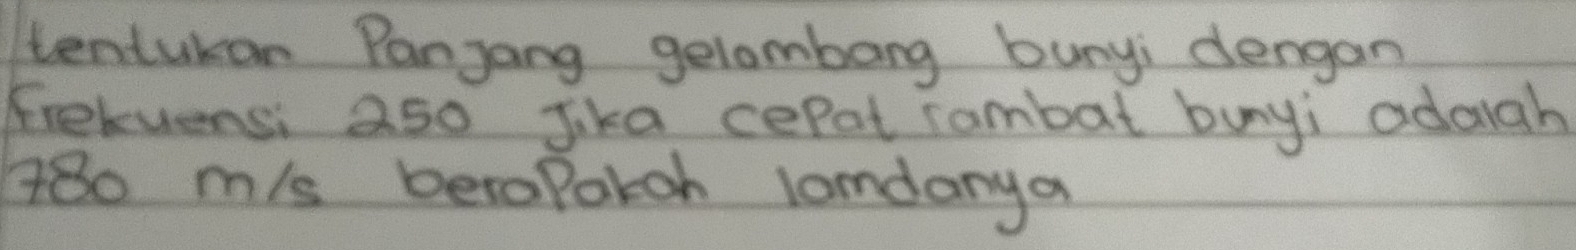 tentukan Panjang gelombang bunyi dengan
Frekuensi 250 Jika cepat rambat bunyi adalah
780 m/s beraPakah lamdanya